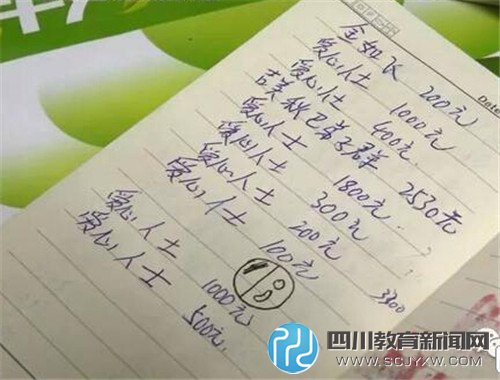 Da
金如飞 200元
爱心人士 1000元
爱心人士 400元
吉美秋巴弟子群 2530元
爱心人士 1800元
爱心人士 300元
爱心人士 200元
爱心人士 100元
3300
爱心人士 1000元
爱心人士 500元
四川教育新闻网
WWW.SCJYXW.COM